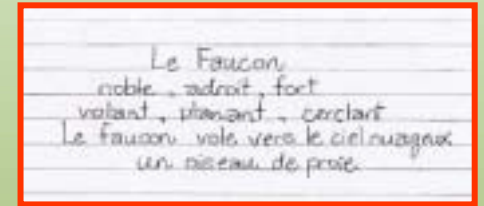 Le Faucon
noble, adroit, fort
volant, planant, cerclant
Le faucon vole vers le ciel nuageux
un oiseau de proie